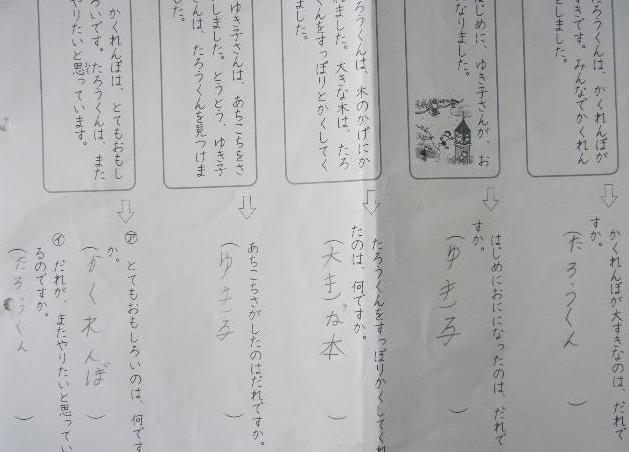 たろうくんは、かくれんぼが
すきです。みんなでかくれん
をしました。
かくれんぼが大すきなのは、だれで
すか。
(たろうくん)
はじめに、ゆき子さんが、お
なりました。
はじめにおにになったのは、だれで
すか。
(ゆき子)
ろうくんは、木のかげにか
れました。大きな木は、たろ
くんをすっぽりとかくしてく
ました。
たろうくんをすっぽりかくしてくれ
たのは、何ですか。
(大きな本)
ゆき子さんは、あちこちをさ
しました。とうとう、ゆき子
さんは、たろうくんを見つけま
した。
あちこちさがしたのはだれですか。
(ゆき子)
かくれんぼは、とてもおもし
ろいです。たろうくんは、また
やりたいと思っています。
㋐ とてもおもしろいのは、何です
か。
(かくれんぼ)
㋑ だれが、またやりたいと思ってい
るのですか。
(たろうくん)